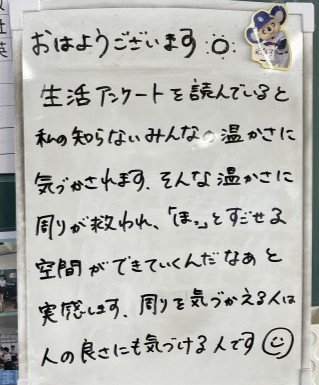 おはようございます
生活アンケートを読んでいると
私の知らないみんなの温かさに
気づかされます、そんな温かさに
周りが救われ、「ほっ」とすごせる
空間ができていくんだなぁと
実感します、周りを気づかえる人は
人の良さにも気づける人です